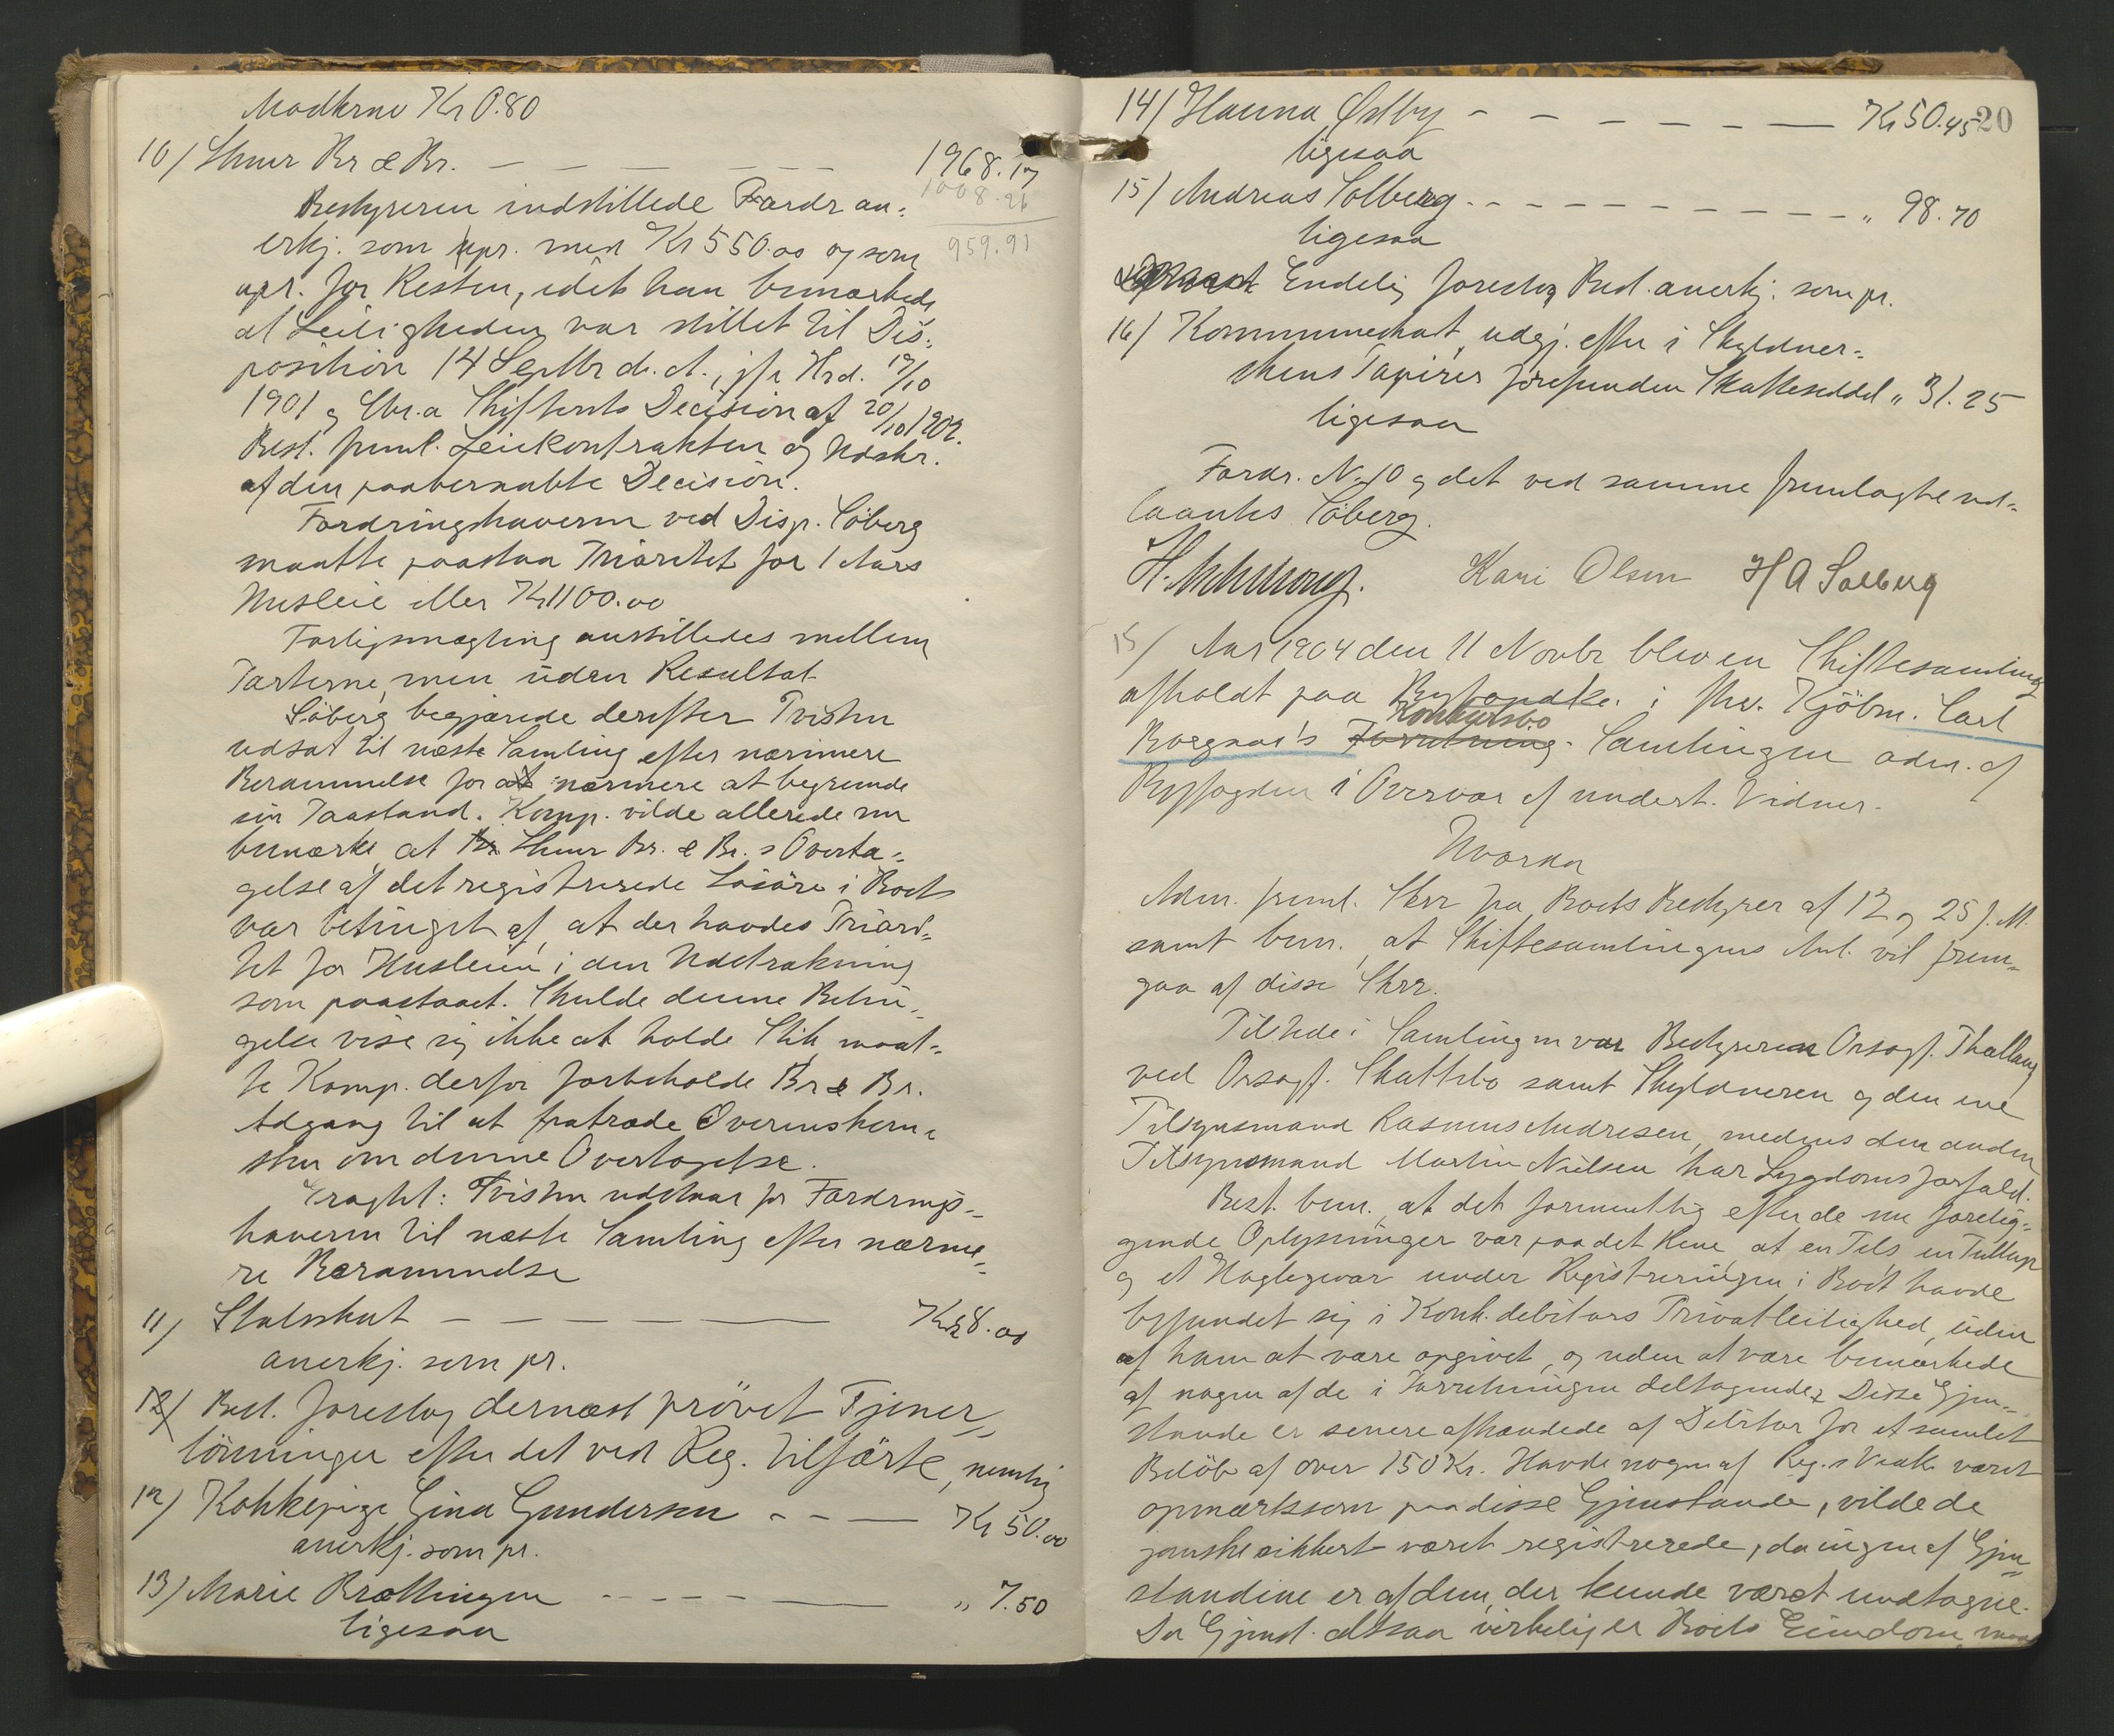 Kr 0.80
10/ Thuer Br & Br. — — — — — 1968.17
1008.26
Bestyreren indstillede Fordr an-
959.91
erkj. som upr. med Kr 550.00 og som
upr. for Resten, idet han bemærkede
at Leiligheden var stillet til Dis-
position 14 Septbr d. A., jfr Hrd. /10
1901 og Chr.a Skifterets Decision af 20/10 1902.
Best. freml. Leiekontrakten og Udskr.
af den paaberaabte Decision.
Fordringshaveren ved Disp. Söberg
maatte paastaa Prioritet for 1 Aars
Husleie eller Kr 1100.00
Forligsmægling anstilledes mellem
Parterne, men uden Resultat
Söberg begjærede derefter Tvisten
udsat til næste Samling efter nærmere
Berammelse for at nærmere at begrunde
sin Paastand. Komp. vilde allerede nu
bemærke at Thuer Br. & Br.s Overta-
gelse af det registrerede Lösöre i Boet
var betinget af, at der havdes Priori-
tet for Husleien i den Udstrækning
som paastaaet. Skulde denne Betin-
gelse vise sig ikke at holde Stik maat-
te Komp. derfor forbeholde Br & Br.
Adgang til at fratræde Overenskom-
sten om denne Overtagelse.
Eragtet: Tvisten udstaar for Fordrings-
haveren til næste Samling efter nærme-
re Berammelse
11/ Statsskat — — — — — Kr 28.00
anerkj. som pr.
12/ Best. foreslog dernæst prövet Tjener-
lönninger efter det ved Reg. tilförte, nemlig
12/ Kokkepige Gina Gundersen - - — Kr 50.00
anerkj. som pr.
13/ Marie Brættingen - - - - — „ 7.50
ligesaa
14/ Hanna Østby - - - - - — Kr 50.45
20
ligesaa
15/ Andreas Solberg - - - - - - - - - „ 98.70
ligesaa
Endelig foreslog Best. anerkj. som pr.
16/ Kommuneskat, udgj. efter i Skyldner-
skens Papirer forefunden Skatteseddel „ 31.25
ligesaa
Fordr. N. 10 og det ved samme fremlagte ud-
laantes Söberg.
Kari Olsen H A Solberg
15/ Aar 1904 den 11 Novbr blev en Skiftesamling
afholdt paa Byfogdkt. i fhv. Kjöbm. Carl
Konkursbo
Borgnæs's Forretning. Samlingen adm. af
Byfogden i Overvær af undert. Vidner.
Hvorda
Adm. freml. Skr. fra Boets Bestyrer af 12 og 25 f. M.
samt bem., at Skiftesamlingens Anl. vil frem-
gaa af disse Skrr.
Tilstede i Samlingen var Bestyreren Orsagf. Thallaug
ved Orsagf. Skattebo samt Skyldneren og den ene
Tilsynsmand Rasmus Andresen, medens den anden
Tilsynsmand Martin Nielsen har Sygdoms forfald.
Best. bem., at det formentlig efter de nu forelig-
gende Oplysninger var paa det Rene at en Pels en Tullup
og et Haglgevær under Registreringen i Boet havde
befundet sig i Konk.debitors Privatleilighed, uden
af ham at være opgivet, og uden at være bemærkede
af nogen af de i Forretningen deltagende. Disse Gjen-
stande er senere afhændede af Debitor for et samlet
Belöb af over 150 Kr. Havde nogen af Reg.s Vidner været
opmærksom paa disse Gjenstande, vilde de
ganske sikkert været registrerede, da ingen af Gjen-
standene er af dem, der kunde været undtagne.
Da Gjenst. altsaa virkelig er Boets Eiendom, maa